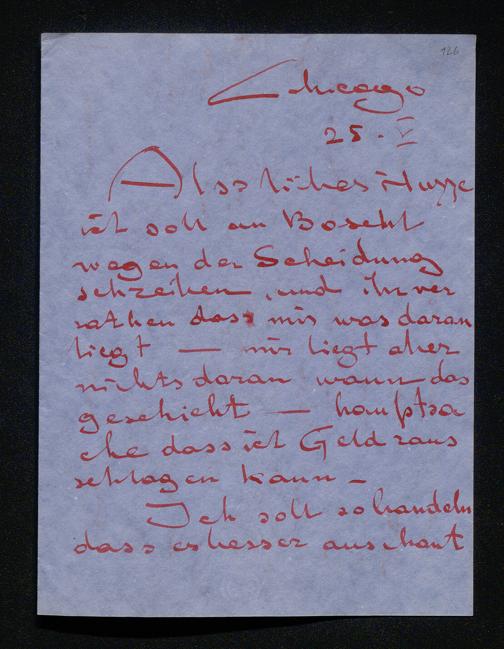 126
Chicago
25. V
Also liebes Huzze
ich soll an Boscht
wegen der Scheidung
schreiben, und ihr ver
rathen dass mir was daran
liegt — mir liegt aber
nichts daran wann das
geschieht — hauptsa
che dass ich Geld raus
schlagen kann —
Ich soll so handeln
dass es besser ausschaut